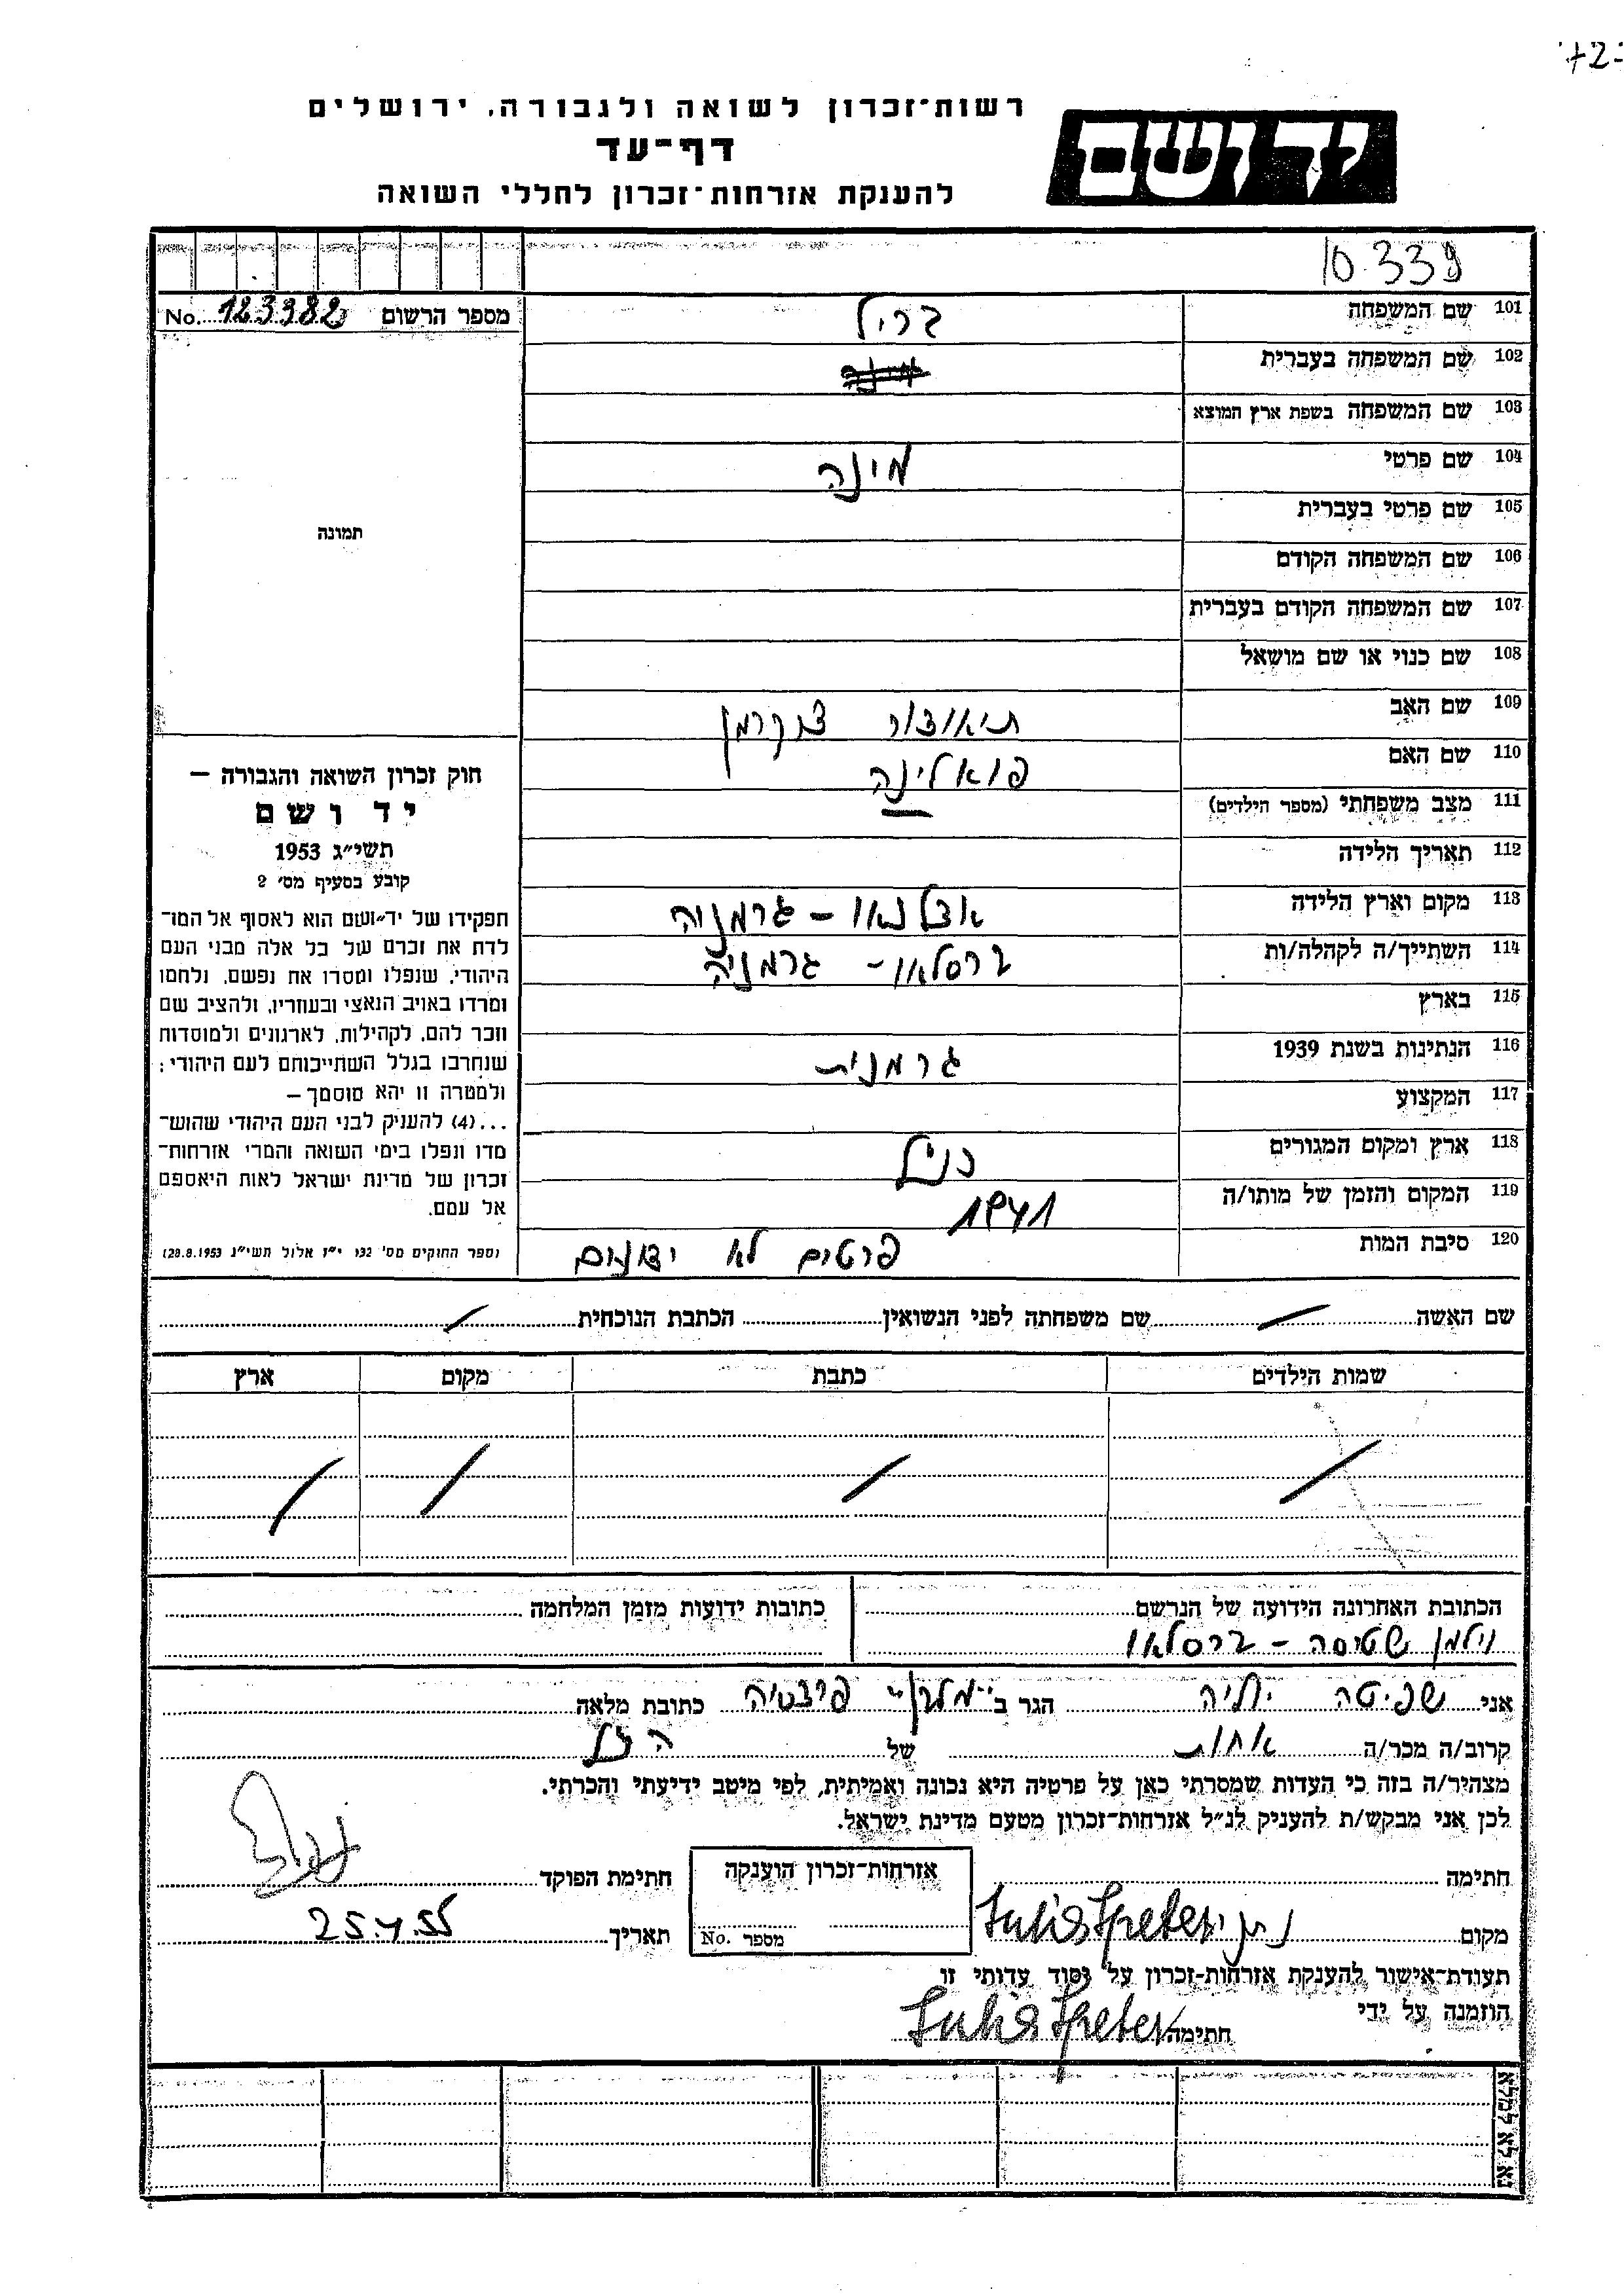 רשות־זכרון לשואה ולגבורה, ירושלים
דף־עד
להענקת אזרחות־זכרון לחללי השואה
יד ושם
10339
מספר הרשום No. 123982
101 שם המשפחה בריל
102 שם המשפחה בעברית
103 שם המשפחה בשפת ארץ המוצא
104 שם פרטי מינה
105 שם פרטי בעברית
106 שם המשפחה הקודם
107 שם המשפחה הקודם בעברית
108 שם כנוי או שם מושאל
109 שם האב תיאודור צוקרמן
110 שם האם פואלינה
111 מצב משפחתי (מספר הילדים) —
112 תאריך הלידה
113 מקום וארץ הלידה גרמניה
114 השתייך/ה לקהלה/ות ברסלאו - גרמניה
115 בארץ
116 הנתינות בשנת 1939 גרמנית
117 המקצוע
118 ארץ ומקום המגורים כנ״ל
119 המקום והזמן של מותו/ה 1941
120 סיבת המות פרטים לא ידועים
תמונה
חוק זכרון השואה והגבורה —
יד ושם
תשי״ג 1953
קובע בסעיף מס׳ 2
תפקידו של יד־ושם הוא לאסוף אל המו־
לדת את זכרם של כל אלה מבני העם
היהודי, שנפלו ומסרו את נפשם, נלחמו
ומרדו באויב הנאצי ובעוזריו, ולהציב שם
וזכר להם, לקהילות, לארגונים ולמוסדות
שנחרבו בגלל השתייכותם לעם היהודי;
ולמטרה זו יהא מוסמך —
...(4) להעניק לבני העם היהודי שהוש־
מדו ונפלו בימי השואה והמרי אזרחות־
זכרון של מדינת ישראל לאות היאספם
אל עמם.
(ספר החוקים מס׳ 132 י״ז אלול תשי״ג 28.8.1953)
שם האשה / שם משפחתה לפני הנשואין הכתבת הנוכחית /
שמות הילדים כתבת מקום ארץ
/ / / /
הכתובת האחרונה הידועה של הנרשם כתובות ידועות מזמן המלחמה
ברסלאו
אני שפיטה יוליה הגר ב כתובת מלאה
קרוב/ה מכר/ה אחות של הנ״ל
מצהיר/ה בזה כי העדות שמסרתי כאן על פרטיה היא נכונה ואמיתית, לפי מיטב ידיעתי והכרתי.
לכן אני מבקש/ת להעניק לנ״ל אזרחות־זכרון מטעם מדינת ישראל.
חתימה אזרחות־זכרון הוענקה חתימת הפוקד
מקום Julia Speter מספר No. תאריך 25.4.55
תעודת־אישור להענקת אזרחות־זכרון על יסוד עדותי זו
הוזמנה על ידי
חתימה Julia Speter
נא לא למלא